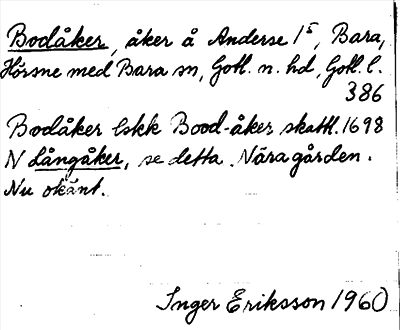 Bodåker, åker å Anderse 1⁵, Bara,
Hörsne med Bara sn, Gotl. n. hd, Gotl. l.
386
Bodåker lskk Bood-åker skattl. 1698
N Långåker, se detta. Nära gården.
Nu okänt.
Inger Eriksson 1960